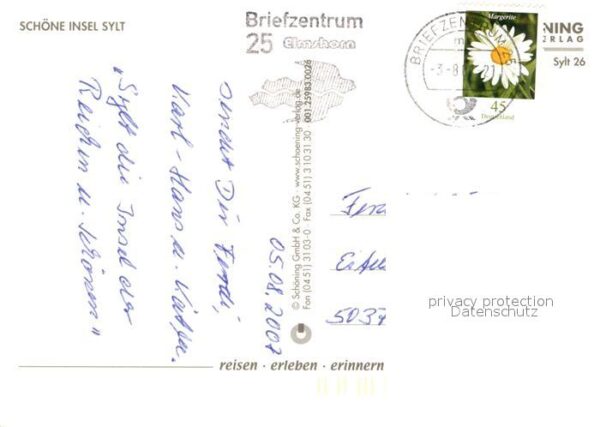 SCHÖNE INSEL SYLT
Briefzentrum
25 Elmshorn
BRIEFZENTRUM 25
-3.-8.
21
Margerite
45
Deutschland
NING
ERLAG
Sylt 26
"Sylt die Insel der
Reichen u. Schönen"
Karl-Hans u. Käthe.
05.08.2007
© Schöning GmbH & Co. KG · www.schoening-verlag.de
Fon (04 51) 31 03-0 · Fax (04 51) 3 10 31 30
001.25983.0026
5037
privacy protection
Datenschutz
reisen · erleben · erinnern